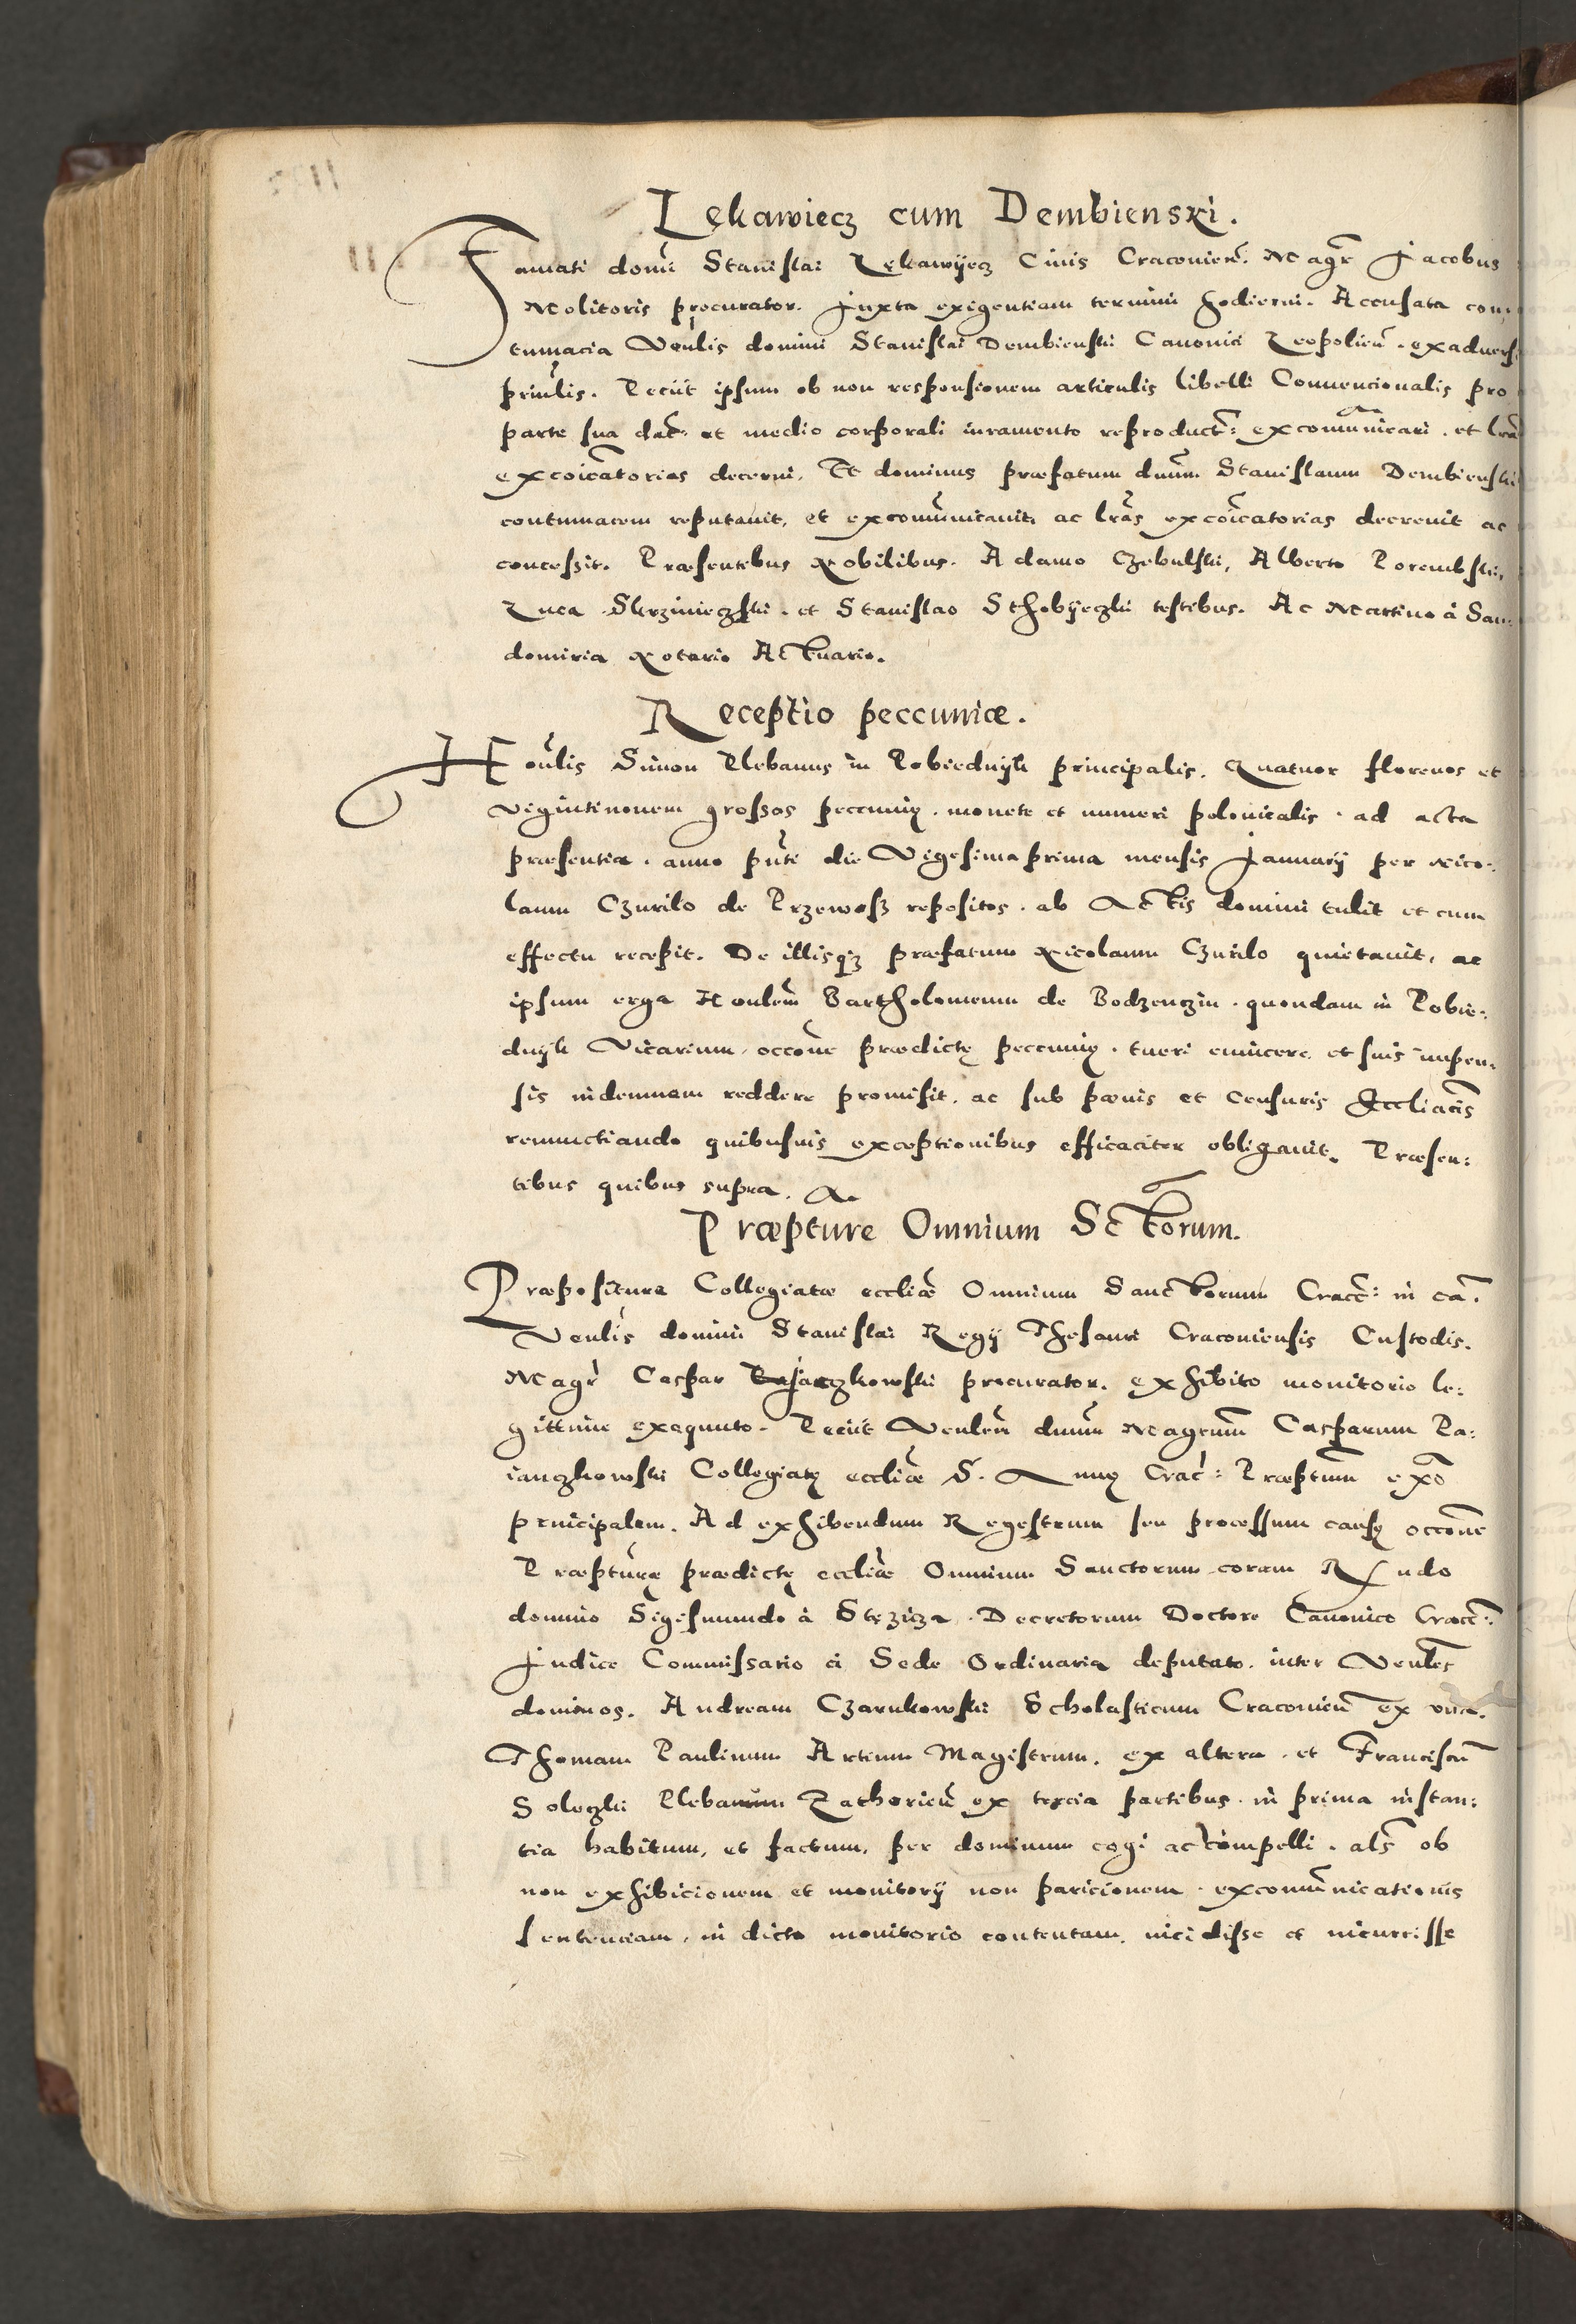 Lękawiecz cum Dembienski.
Famati domī Stanislai Lękawÿecz Civis Cracovieñ. Magr̃ Jacobus
Molitoris procurator. Juxta exigentiam termini hodierni. Accusata con-
tumacia Venl̃is domini Stanislai Dembienski Canonici Leopolieñ. exadvers
prin̄lis. Peciit ipsum ob non responsionem articulis libelli Convencionalis pro
parte sua dat̃: et medio corporali iuramento reproduct̃: excomūnicari. et lr̃as
excoīcatorias decerni. Et dominus præfatum dnūm Stanislaum Dembienski
contumacem reputavit, et excomūnicavit, ac lr̃as excoīcatorias decrevit ac
conceszit. Præsentibus Nobilibus. Adamo Czebulski, Alberto Porembski,
Luca Skrzinieczski. et Stanislao Sthobÿeczki testibus. Ac Martino à San:
domiria Notario Actuario.
Receptio peccuniæ.
Hoñlis Simon Plebanus in Pobiednÿk principalis. Quatuor florenos et
vigintinovem groszos peccunię. monete et numeri polonicalis. ad acta
præsentia. anno pñti die Vigesimaprima mensis Januarÿ per Nico:
laum Czurilo de Przewosz repositos. ab Actis domini tulit et cum
effectu recepit. De illisq₃ præfatum Nicolaum Czurilo quietavit, ac
ipsum erga Honlem̃ Bartholomeum de Bodzenczin. quondam in Pobie:
dnÿk Vicarium, occõne prædictę peccunię. tueri evincere, et suis impen:
sis indemnem reddere promisit. ac sub pœnis et censuris Eccliacis̃
renunctiando quibusvis exceptionibus efficaciter obligavit. Præsen:
tibus quibus supra. A.
Præpture Omnium Sctorum.
Præpositura Collegiatæ eccliæ Omnium Sanctorum Cracc̃: in cã.
Venl̃is domini Stanislai Regÿ Thesauri Cracoviensis Custodis.
Magr̃ Caspar procurator. exhibito monitorio le:
gittime exequuto. Peciit Venlem̃ dnūm Magrum̃ Casparum Pa:
ianczkowski Collegiatę eccliæ S. Annę Crac̃: Præptum̃ exõ
principalem. Ad exhibendum Regestrum seu processum causę occõne
Præpturę prædictę eccliæ Omnium Sanctorum coram Rndo
domino Sigismundo à Stęzicza. Decretorum Doctore Canonico Cracc̃:
Judice Commissario à Sede Ordinaria deputato. inter Venles̃
dominos. Andream Czarnkowski Scholasticum Cracovieñ ex una.
Thomam Paulinum Artium Magistrum. ex altera. et Franciscũ
Soleczki Plebanum Zathorieñ ex tercia partibus. in prima instan:
tia habitum, et factum, per dominum cogi ac compelli. als̃ ob
non exhibicionem et monitorÿ non paricionem. excomūnicationis
sentenciam, in dicto monitorio contentam, incidisse et incurrisse